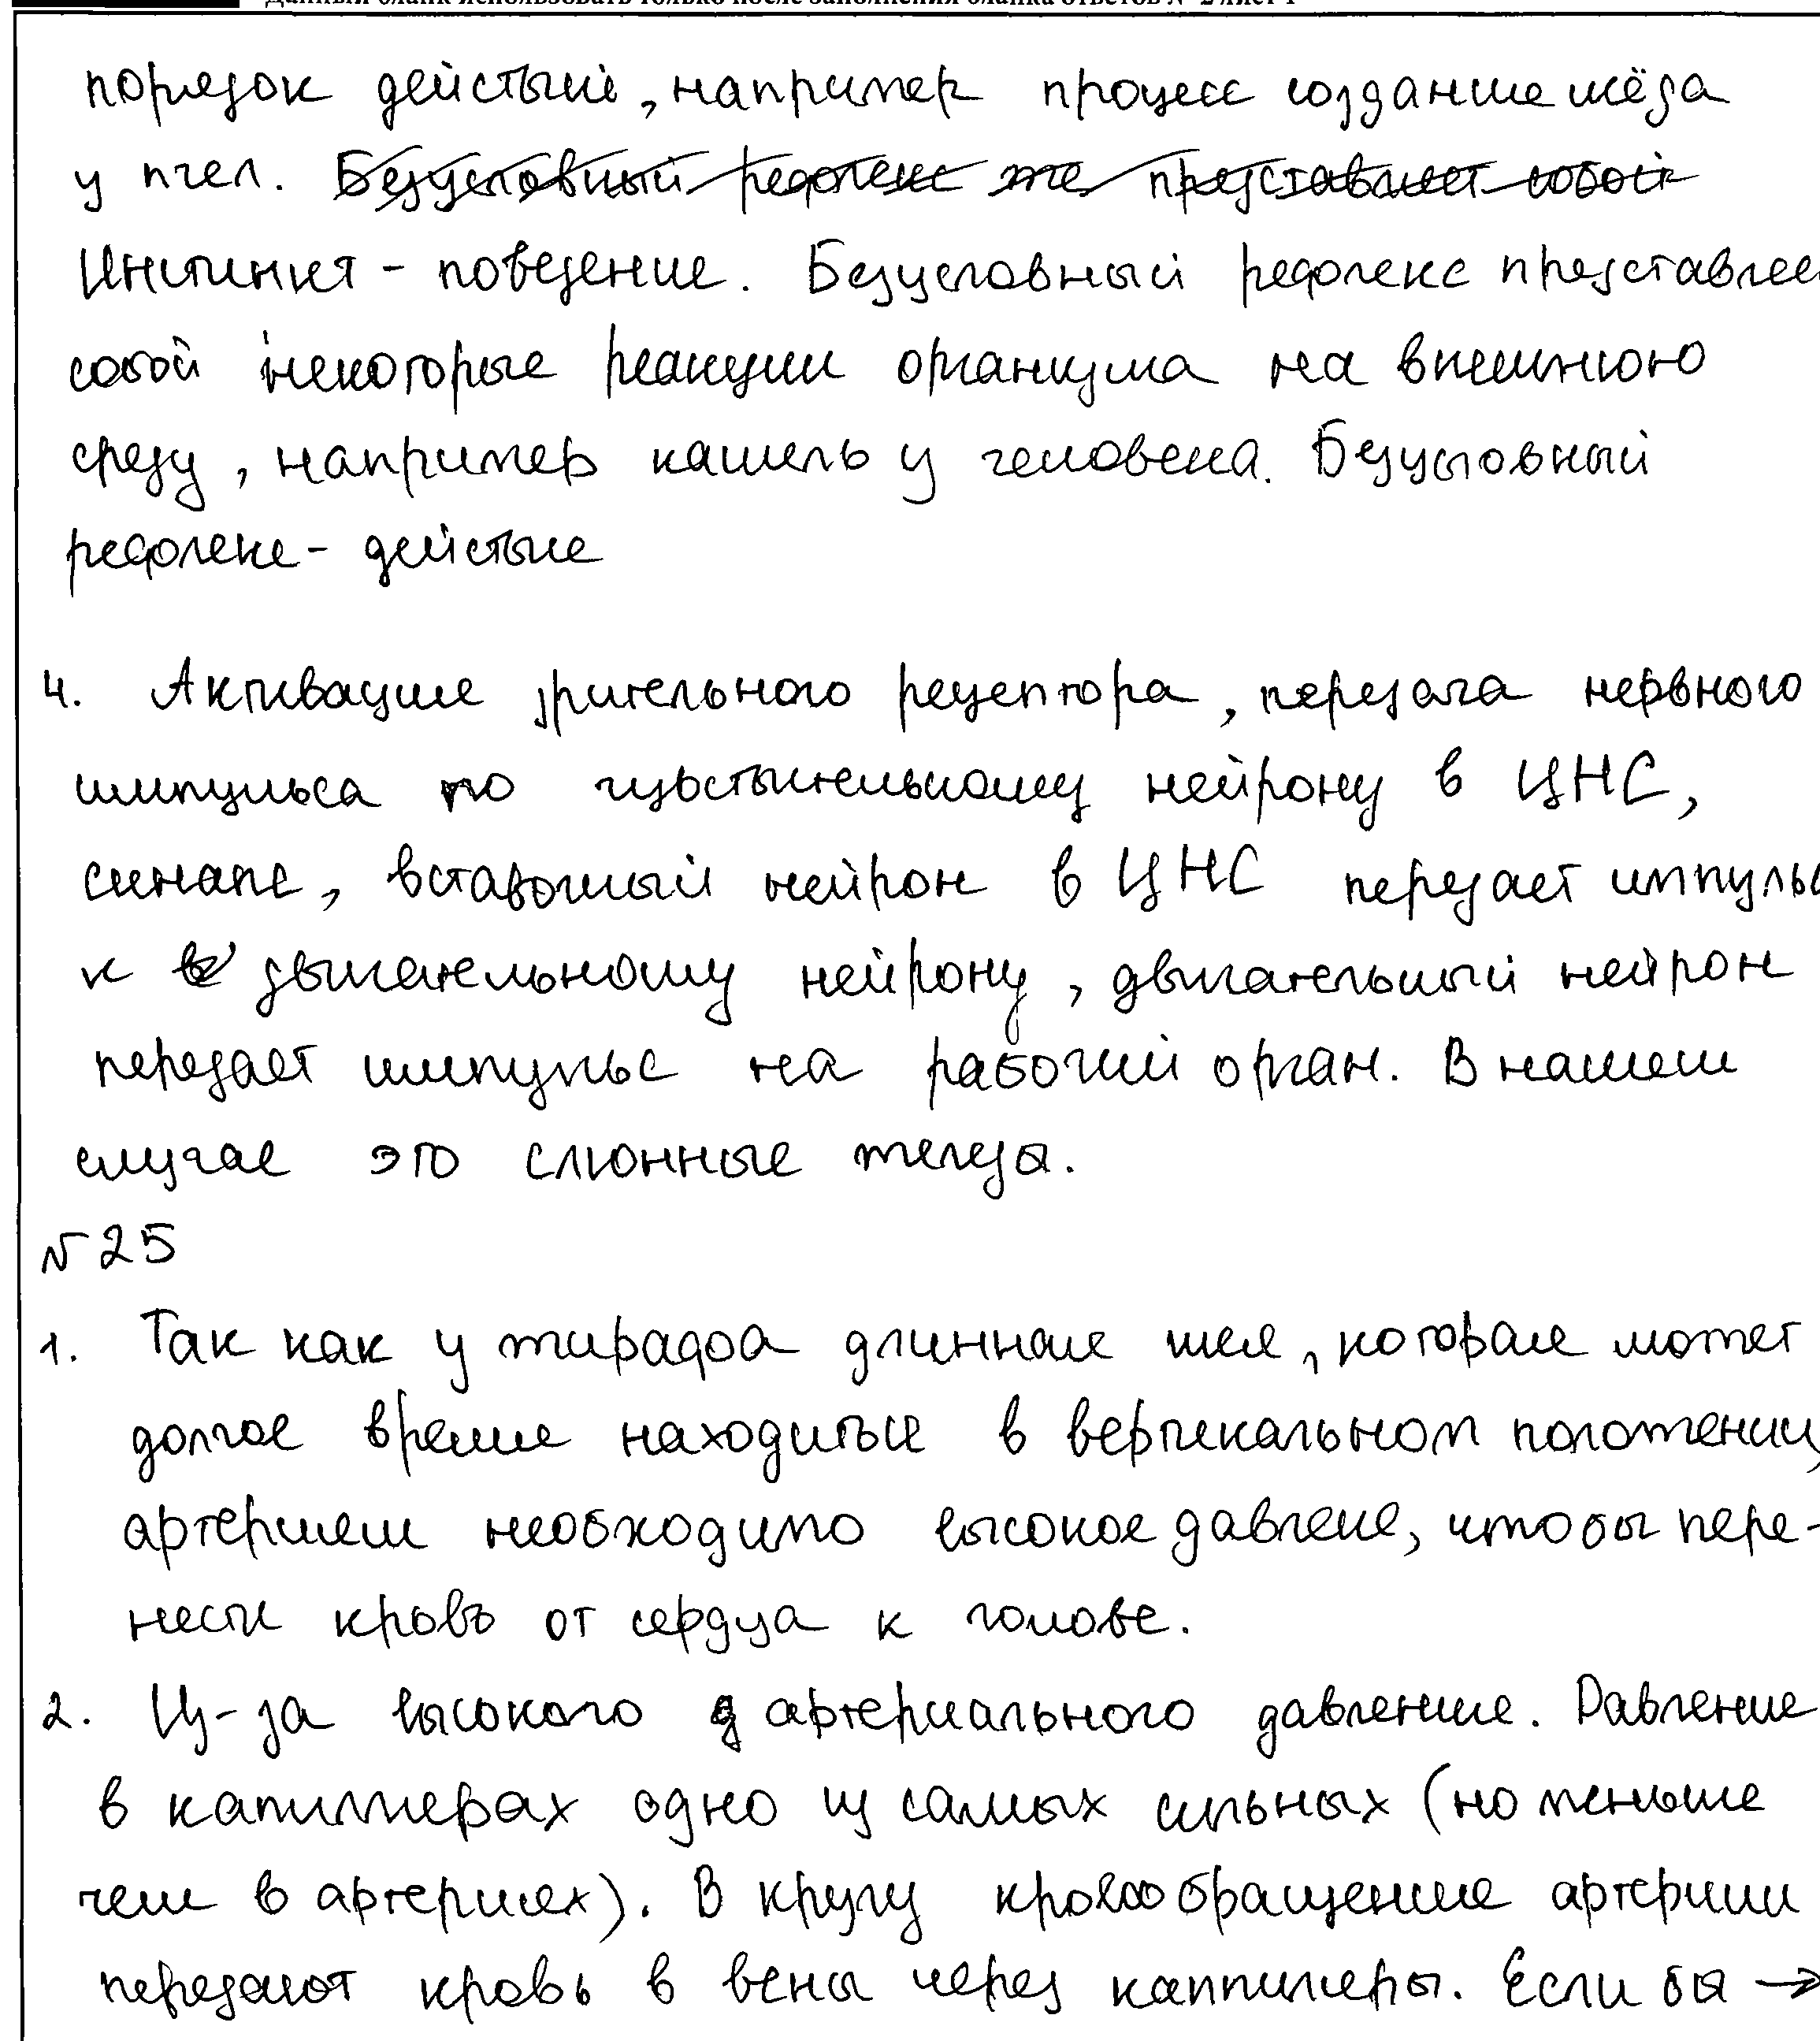 Данный бланк использовать только после заполнения бланка ответов № 2 лист 1
порядок действий, например процесс создания мёда
у пчел. Безусловный рефлекс же представляет собой
Инстинкт - поведение. Безусловный рефлекс представляе
собой некоторые реакции организма на внешнюю
среду, например кашель у человека. Безусловный
рефлекс - действие
4. Активация зрительного рецептора, передача нервного
импульса по чувствительному нейрону в ЦНС,
синапс, вставочный нейрон в ЦНС передает импульс
к двигательному нейрону, двигательный нейрон
передает импульс на рабочий орган. В нашем
случае это слюнные железы.
№25
1. Так как у жирафа длинная шея, которая может
долгое время находиться в вертикальном положении,
артериям необходимо высокое давлене, чтобы пере-
нести кровь от сердца к голове.
2. Из-за высокого артериального давления. Давление
в капиллярах одно из самых сильных (но меньше
чем в артериях). В кругу кровообращения артерии
передают кровь в вены через каппиляры. Если бы →